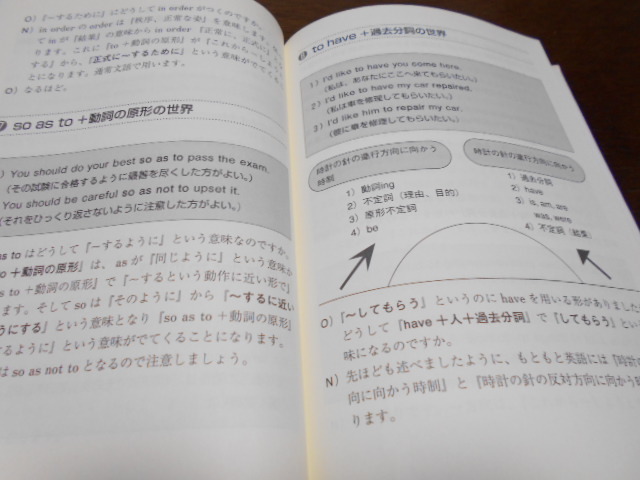 O)『~するために』にどうして in order がつくのですか。
N) in order の order は『秩序、正常な姿』を意味します。
て in が『結果』の意味から in order 『正常に、正式に』
ります。これに『to +動詞の原形』が『これから~し
する』から、『正式に~するために』という意味がでてくる
ことになります。通常文語で用います。
O) なるほど。
so as to +動詞の原形の世界
You should do your best so as to pass the exam.
(その試験に合格するように最善を尽くした方がよい。)
You should be careful so as not to upset it.
(それをひっくり返さないように注意した方がよい。)
as to はどうして『~するように』という意味なのですか。
to +動詞の原形』は、as が『同じように』という意味か
as to +動詞の原形』で『~するという動作に近い形で』
ます。そして so は『そのように』から『~するに近い
うにする』という意味となり『so as to +動詞の原形』
するように』という意味がでてくることになります。
は so as not to となるので注意しましょう。
to have +過去分詞の世界
1) I'd like to have you come here.
(私は、あなたにここへ来てもらいたい。)
2) I'd like to have my car repaired.
(私は車を修理してもらいたい。)
3) I'd like him to repair my car.
(彼に車を修理してもらいたい。)
時計の針の進行方向に向かう
時制
1) 動詞ing
2) 不定詞(理由、目的)
3) 原形不定詞
4) be
時計の針の逆行方向に向かう
1) 過去分詞
2) have
3) is, am, are
was, were
4) 不定詞(結果)
O)『~してもらう』というのに have を用いる形がありました
どうして『have +人+過去分詞』で『してもらう』とい
味になるのですか。
N) 先ほども述べましたように、もともと英語には『時計の
向に向かう時制』と『時計の針の反対方向に向かう時
ります。